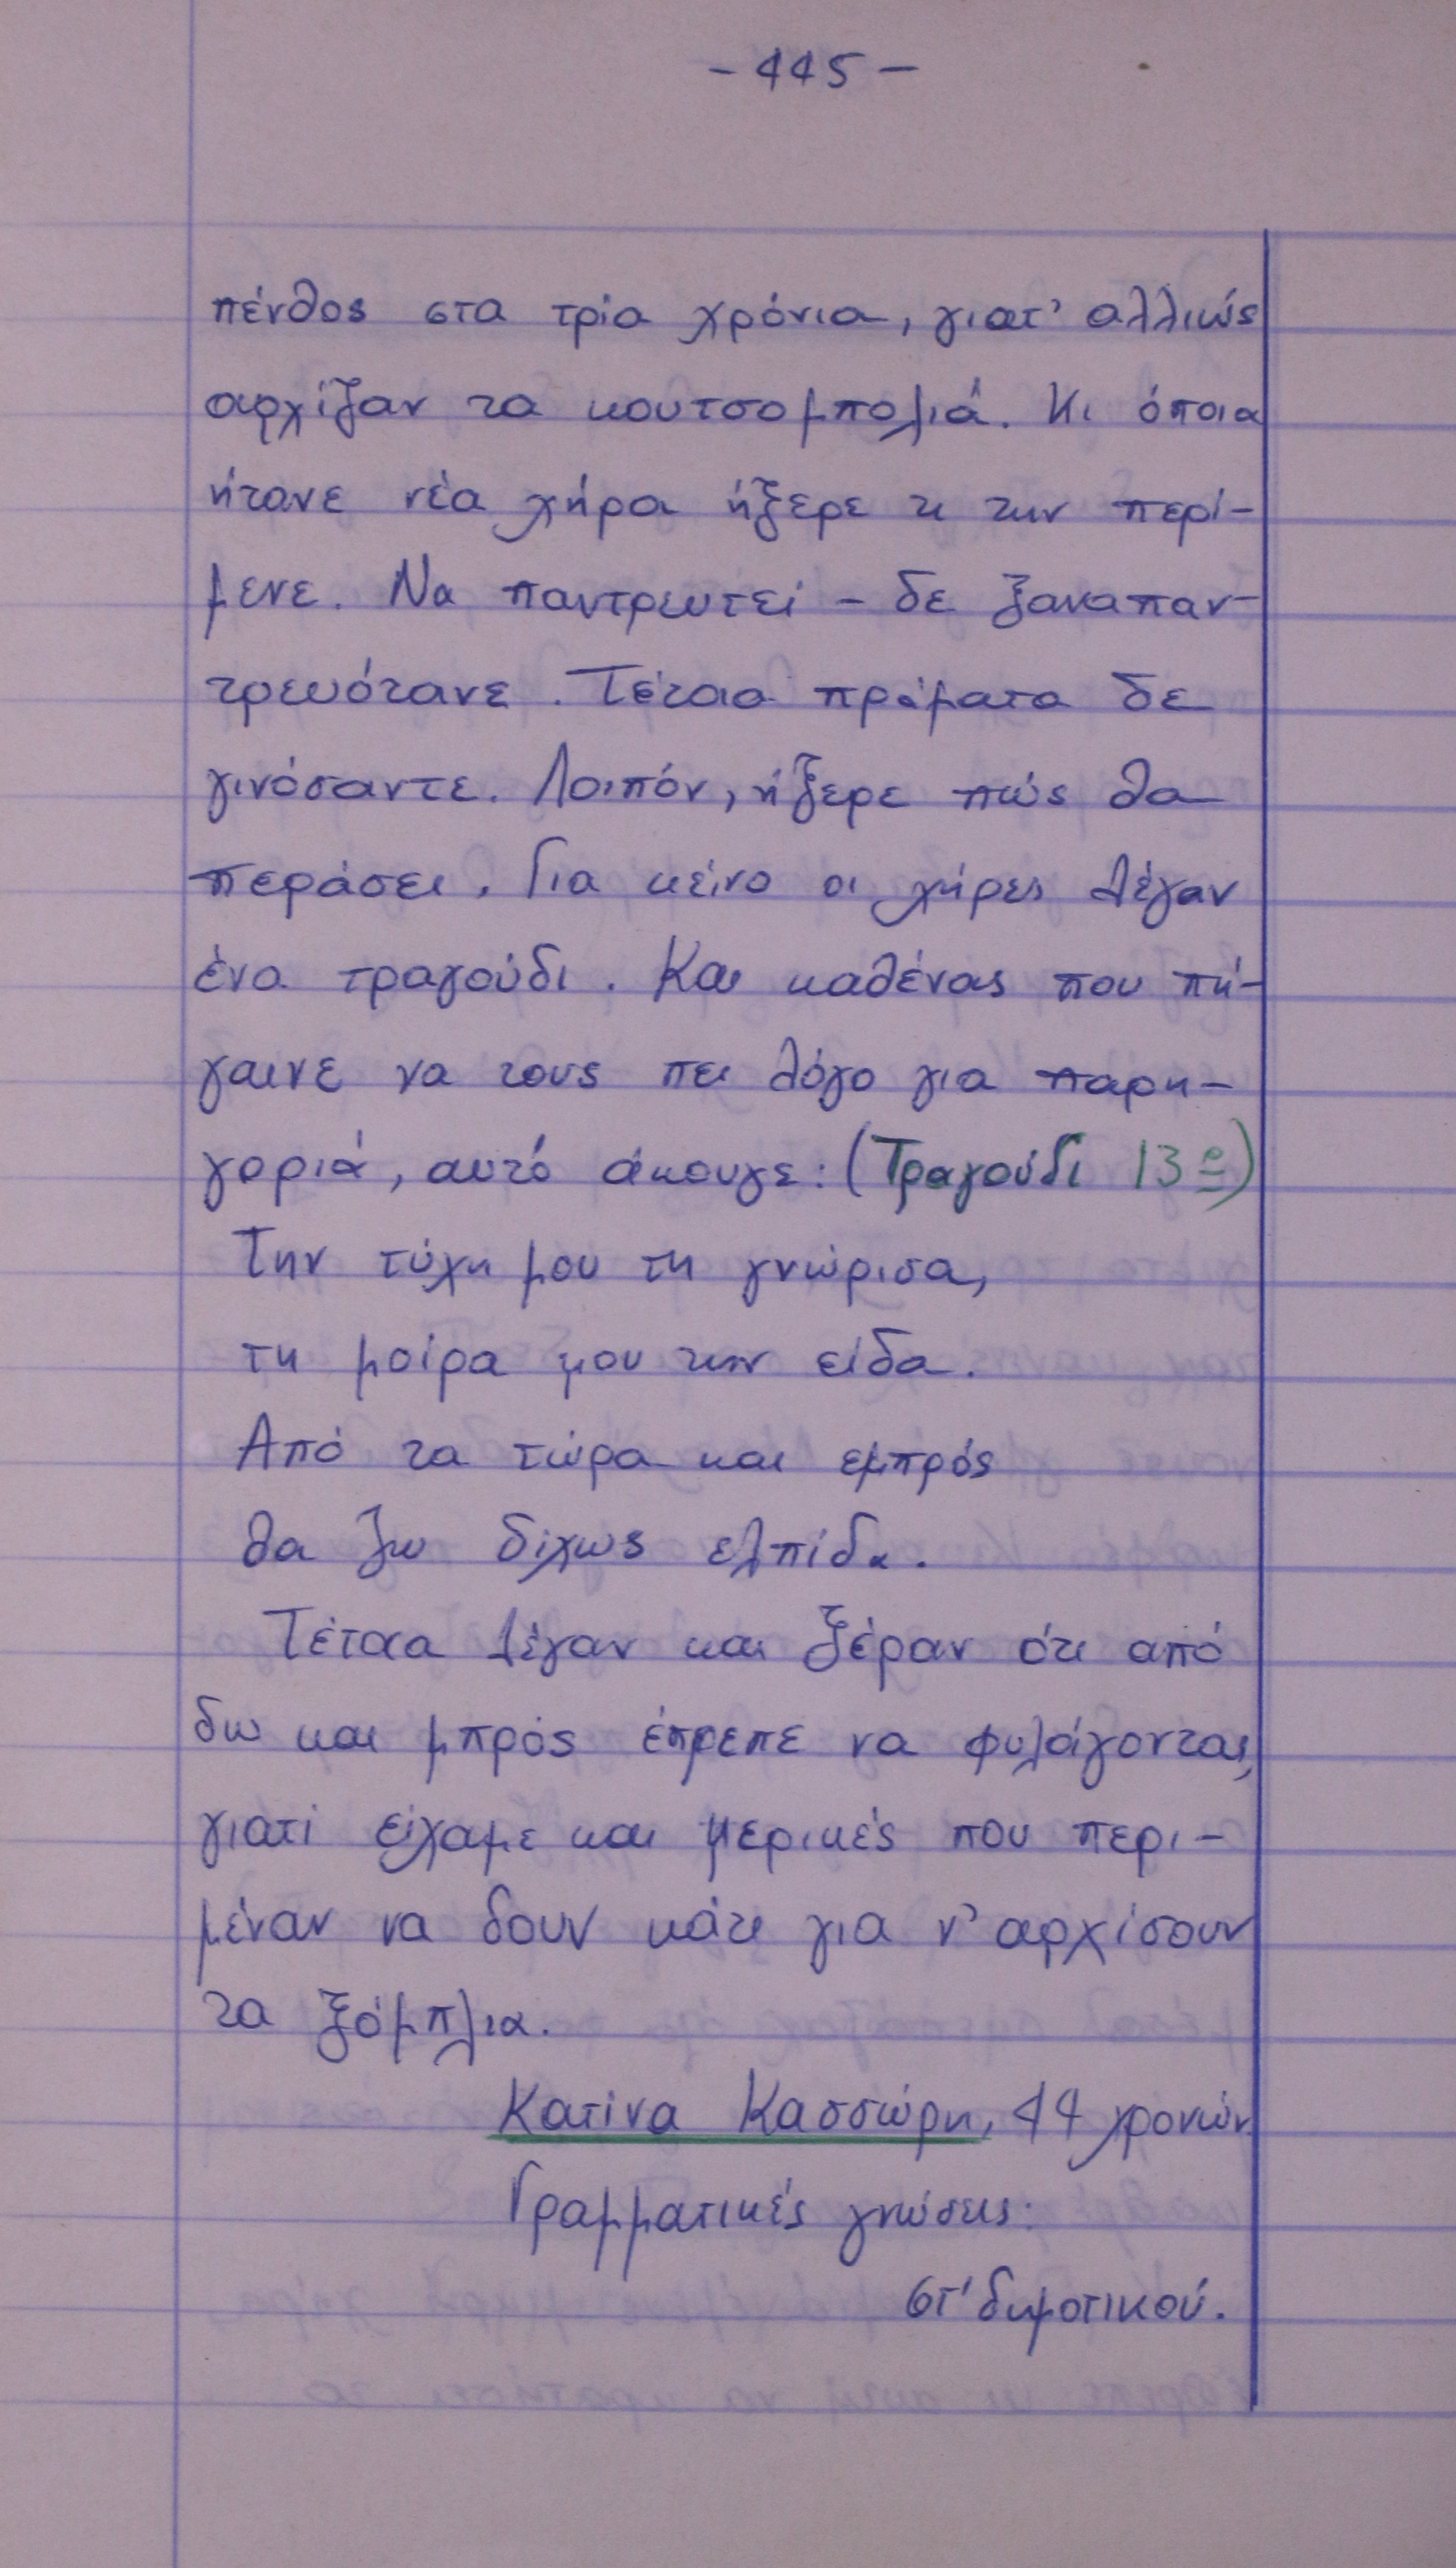 - 445 -
πένθος στα τρία χρόνια, γιατ' αλλιώς
αρχίζαν τα κουτσομπολιά. Κι όποια
ήτανε νέα χήρα ήξερε τι την περί-
μενε. Να παντρευτεί - δε ξαναπαν-
τρευότανε. Τέτοια πράματα δε
γινόσαντε. Λοιπόν, ήξερε πώς θα
περάσει. Για κείνο οι χήρες λέγαν
ένα τραγούδι. Και καθένας που πή-
γαινε να τους πει λόγο για παρη-
γοριά, αυτό άκουγε: (Τραγούδι 13ο)
Την τύχη μου τη γνώρισα,
τη μοίρα μου την είδα.
Από τα τώρα και εμπρός
θα ζω δίχως ελπίδα.
Τέτοια λέγαν και ξέραν ότι από
δω και μπρος έπρεπε να φυλάγονται,
γιατί είχαμε και μερικές που περι-
μέναν να δουν κάτι για ν' αρχίσουν
τα ξόμπλια.
Κατίνα Κασσώρη, 44 χρονών
Γραμματικές γνώσεις:
στ' δημοτικού.